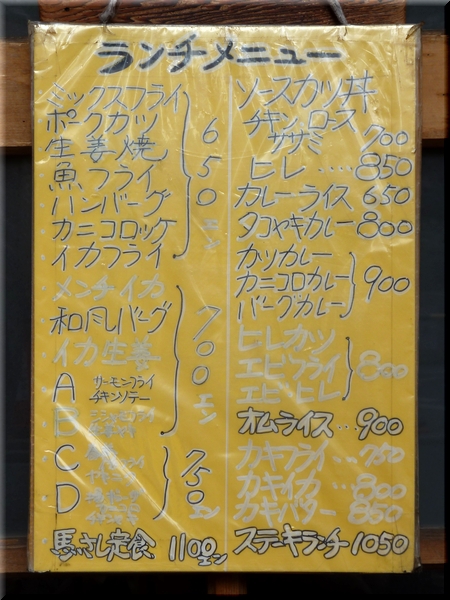 ランチメニュー
ミックスフライ
ポークカツ
生姜焼
魚フライ
ハンバーグ
カニコロッケ
イカフライ
650エン
メンチイカ
和風バーグ
イカ生姜
A サーモンフライ
チキンソテー
B
700エン
C
D
750エン
馬さし定食 1100エン
ソースカツ丼
チキン、ロース
ササミ 700
ヒレ ....850
カレーライス 650
タコヤキカレー 800
カツカレー
カニコロカレー
バーグカレー
900
ヒレカツ
エビフライ
エビヒレ
800
オムライス...900
カキフライ...750
カキイカ...800
カキバター...850
ステーキランチ 1050